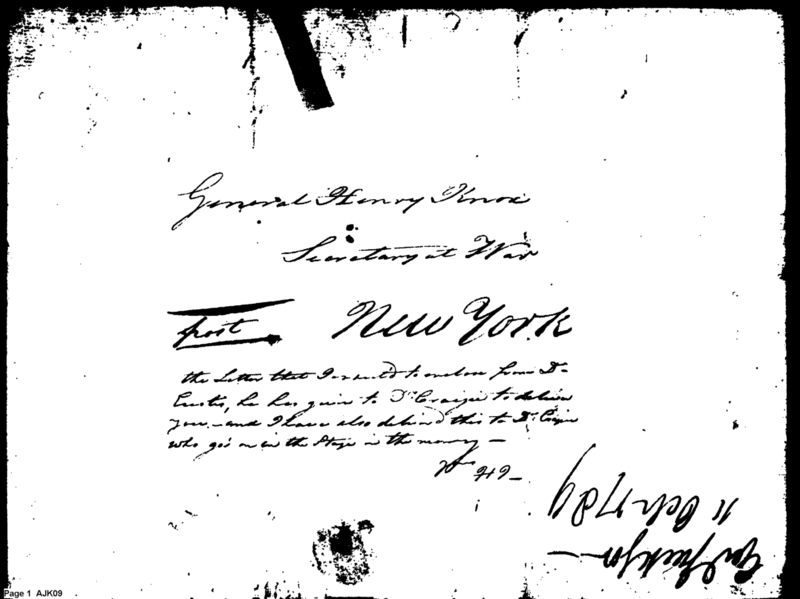 General Henry Knox
Secretary at War
post
New York
the Letter that I meant to enclose from Dr
Eustis, he has given to Dr Craigie to deliver
you, — and I have also deliverd this to Dr Craigie
who goes on in the Stage in the morning —
Yrs HJ —
Genl Jackson —
11 Octr 1789
Page 1 AJK09